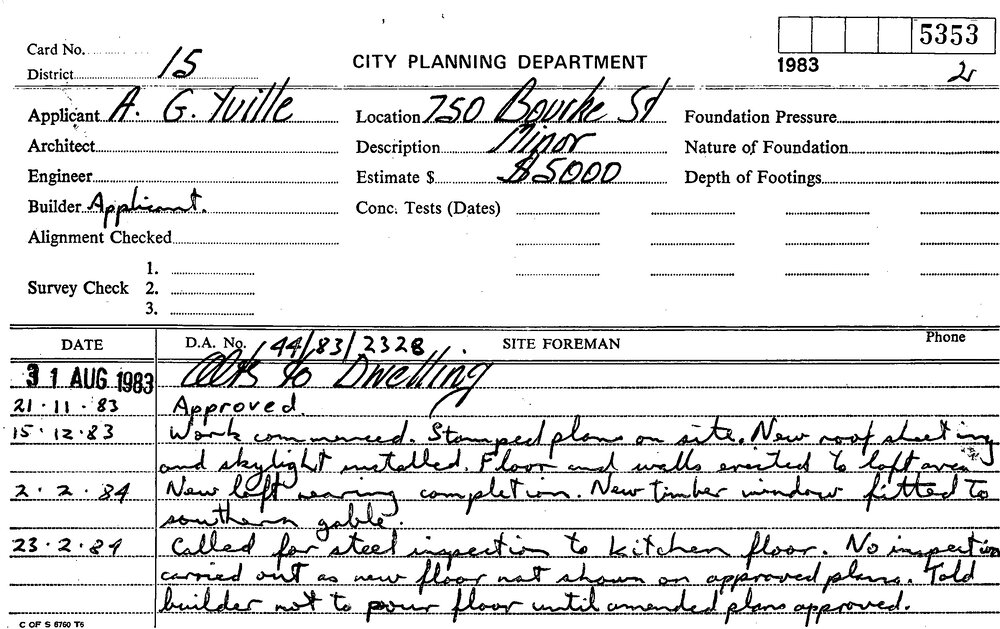 5353
Card No.
CITY PLANNING DEPARTMENT
1983
District 15
2
Applicant A. G. Yuille
Location 750 Bourke St
Foundation Pressure
Architect
Description Minor
Nature of Foundation
Engineer
Estimate $ $5000
Depth of Footings
Builder Applicant.
Conc. Tests (Dates)
Alignment Checked
1.
Survey Check 2.
3.
DATE
D.A. No. 44/83/2328.
SITE FOREMAN
Phone
31 AUG 1983 Alts to Dwelling
21.11.83 Approved.
15.12.83 Work commenced. Stamped plans on site. New roof sheeting
and skylight installed. Floor and walls erected to loft area
2.2.84 New loft nearing completion. New timber window fitted to
southern gable.
23.2.84 Called for steel inspection to kitchen floor. No inspection
carried out as new floor not shown on approved plans. Told
builder not to pour floor until amended plans approved.
C OF S 6760 T6